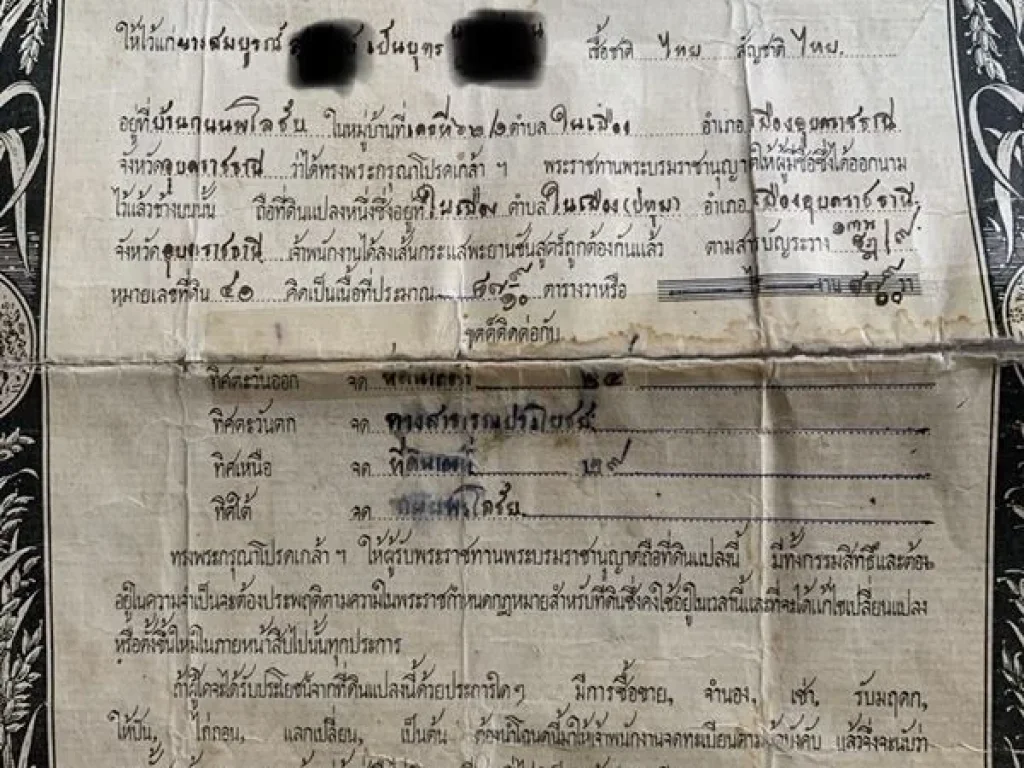 ให้ไว้แก่ นางสมบูรณ์ เป็นบุตร เชื้อชาติ ไทย สัญชาติ ไทย.
อยู่ที่ บ้านถนนพโลชัย ในหมู่บ้านที่ ตำบล ในเมือง อำเภอ เมืองอุบลราชธานี
จังหวัด อุบลราชธานี ว่าได้ทรงพระกรุณาโปรดเกล้า ฯ พระราชทานพระบรมราชานุญาตให้ผู้มีชื่อซึ่งได้ออกนาม
ไว้แล้วข้างบนนั้น ถือที่ดินแปลงหนึ่งซึ่งอยู่ที่ ในเมือง ตำบล ในเมือง (ปทุม) อำเภอ เมืองอุบลราชธานี
จังหวัด อุบลราชธานี เจ้าพนักงานได้ลงเส้นกระแสพะยานชันสูตร์ถูกต้องกันแล้ว ตามสารบัญระวาง
หมายเลขที่ดิน ๔๑ คิดเป็นเนื้อที่ประมาณ ตารางวาหรือ งาน วา
เขตต์ติดต่อกับ
ทิศตะวันออก จด ที่ดินเลขที่ ๒๕
ทิศตะวันตก จด ทางสาธารณประโยชน์
ทิศเหนือ จด ที่ดินเลขที่ ๒๗
ทิศใต้ จด ถนนพโลชัย
ทรงพระกรุณาโปรดเกล้า ฯ ให้ผู้รับพระราชทานพระบรมราชานุญาตถือที่ดินแปลงนี้ มีทั้งกรรมสิทธิ์และต้อง
อยู่ในความจำเป็นจะต้องประพฤติตามความในพระราชกำหนดกฎหมายสำหรับที่ดินซึ่งคงใช้อยู่ในเวลานี้และที่จะได้แก้ไขเปลี่ยนแปลง
หรือตั้งขึ้นใหม่ในภายหน้าสืบไปนั้นทุกประการ
ถ้าผู้ใดจะได้รับประโยชน์จากที่ดินแปลงนี้ด้วยประการใด ๆ มีการซื้อขาย, จำนอง, เช่า, รับมฤดก,
ให้ปัน, ไถ่ถอน, แลกเปลี่ยน, เป็นต้น ต้องนำโฉนดนี้มาให้เจ้าพนักงานจดทะเบียนตามข้อบังคับ แล้วจึงจะนับว่า